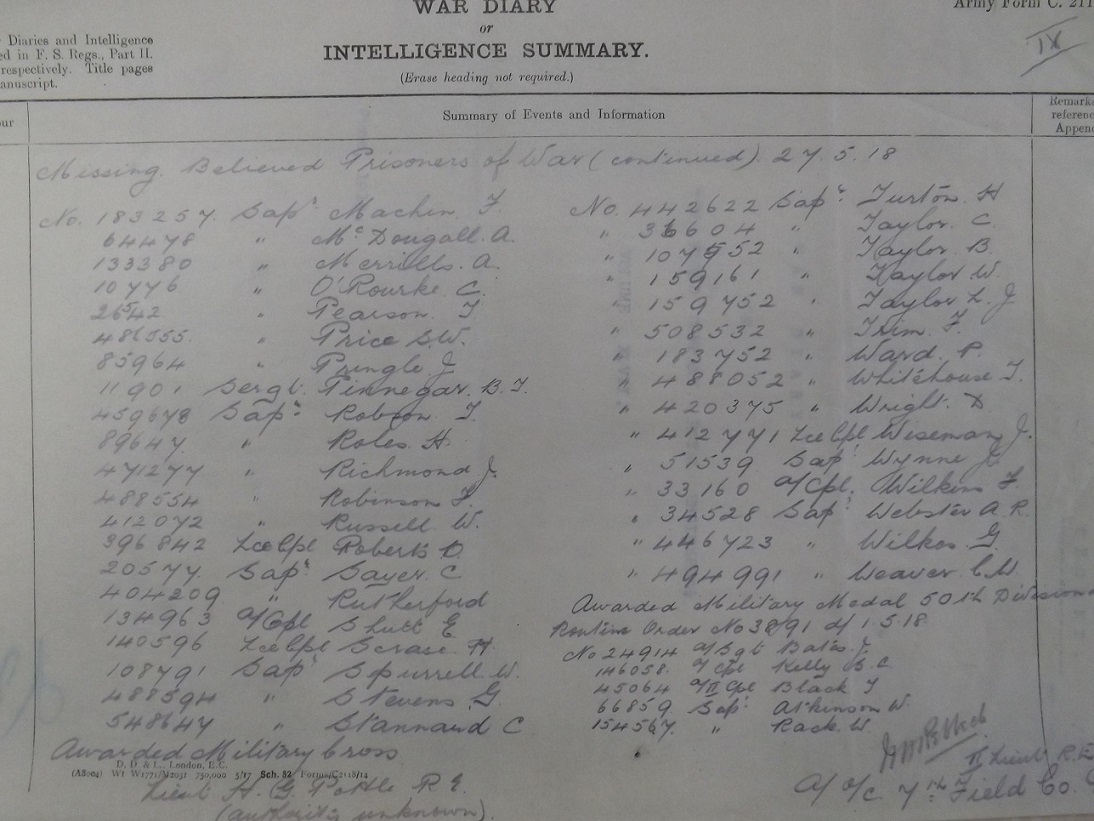 WAR DIARY
or
INTELLIGENCE SUMMARY.
(Erase heading not required.)
Army Form C. 211
IX
Diaries and Intelligence
ed in F. S. Regs., Part II.
respectively. Title pages
anuscript.
our
Summary of Events and Information
Remarks
referenc
Appen
Missing. Believed Prisoners of War (continued) 27.5.18
No. 183257. Sapr Machin. F.
64478 " McDougall. A.
133380 " Merrills. A.
10776 " O'Rourke. C.
2642 " Pearson. T
486555. " Price S.W.
85964 " Pringle. J
11901 Sergt. Pinnegar. B.T.
459678 Sapr. Robson. T.
89647. " Roles. H.
471277 " Richmond J.
488554 " Robinson F.
412072 " Russell. W.
396842 Lce Cpl Roberts D
20577. Sapr Sayer. C
404209 " Rutherford
134963 A/Cpl Shutt E
140596 Lce Cpl Scrase. H
108791 Sapr Spurrell. W.
488594 " Stevens. G.
548647 " Stannard C
Awarded Military Cross
D. D. & L., London, E.C.
(A8004) Wt W1771/M2031 750,000 5/17 Sch. 52 Forms/C2118/14
Lieut H. G. Pottle R.E.
(authority unknown).
No. 442622 Sapr. Turton. H
" 36604 " Taylor. C.
" 107952 " Taylor. B.
" 159161 " Taylor W.
" 159752 " Taylor L. J
" 508532 " Trim. F.
" 183752 " Ward. P.
" 488052 " Whitehouse. T.
" 420375 " Wright. D
" 412771 Lce Cpl Wiseman J.
" 51539 Sapr Wynne J.
" 33160 A/Cpl. Wilkins F.
" 34528 Sapr Webster A. R.
" 446723 " Wilkes. G.
" 494991 " Weaver. C.W.
Awarded Military Medal 50th Division
Routine Order No 3891 d/ 1.5.18.
No 24914 A/Sgt Bates. J.
146058. A/Cpl Kelly S. C
45064 A/II Cpl Black T
66859 Sapr. Atkinson W.
154567. " Rack W.
II Lieut R.E
A/ O/c 7th Field Co.